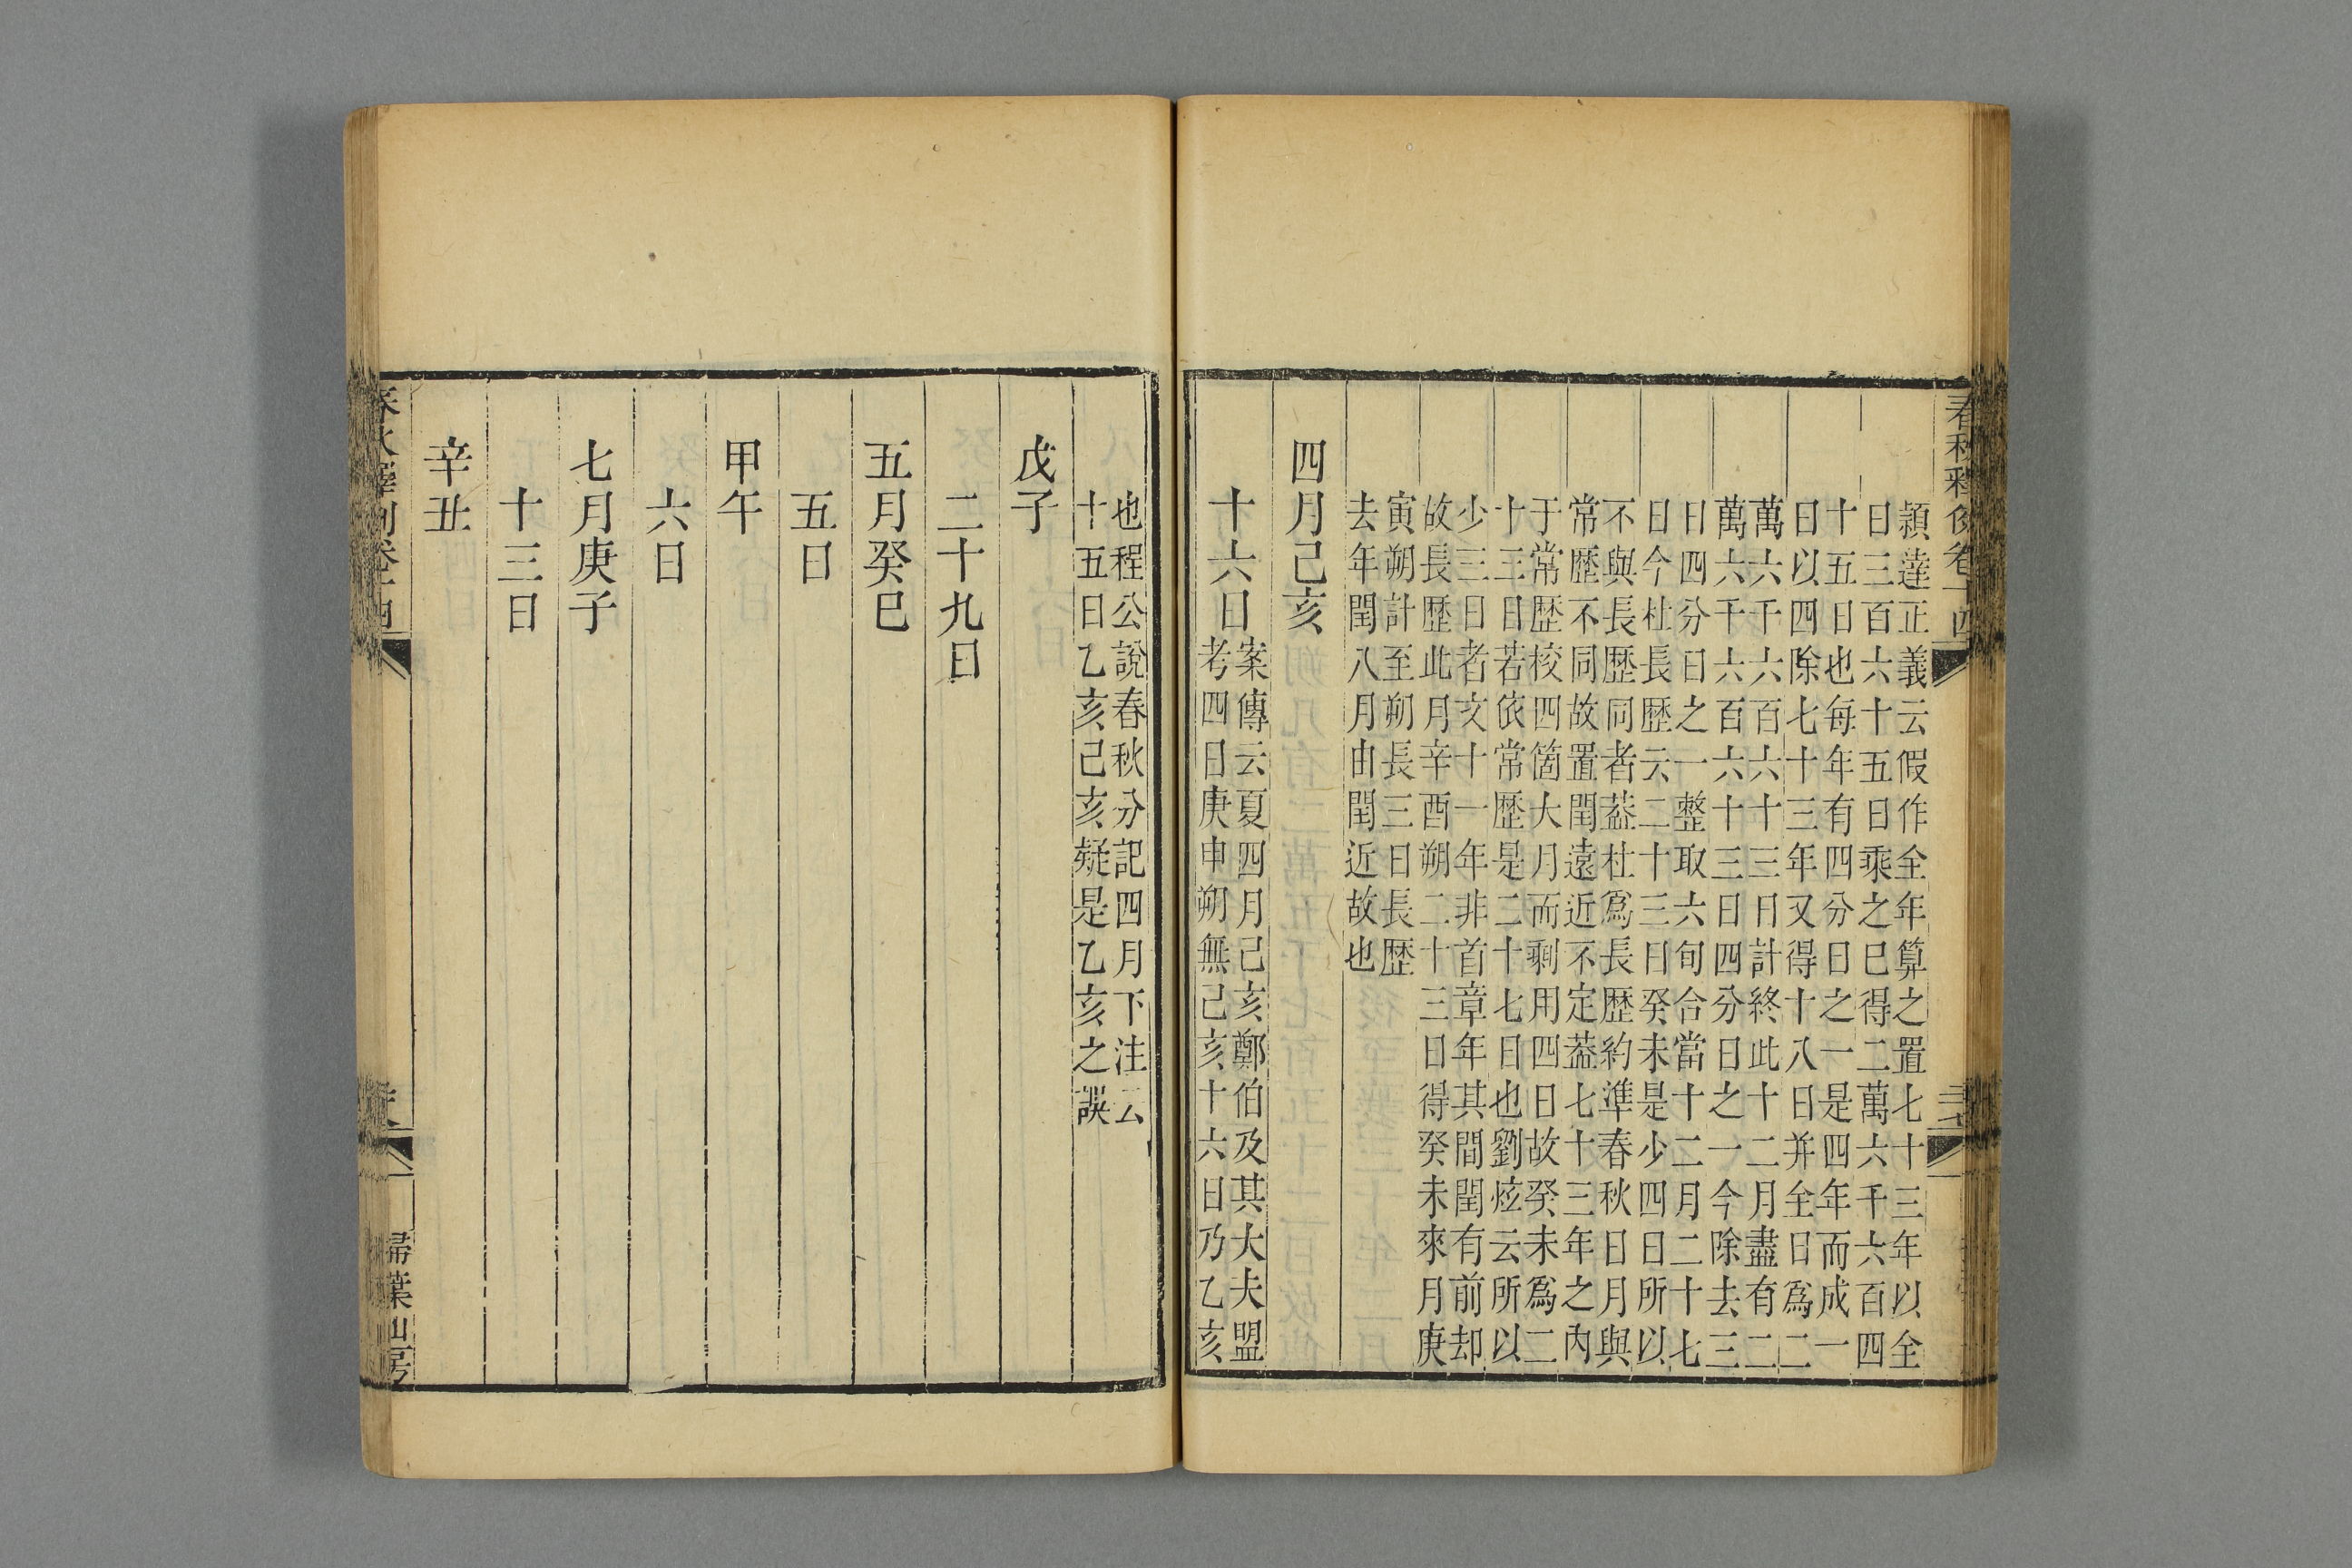 春秋釋例卷十四
穎達正義云假作全年算之置七十三年以全
日三百六十五日乘之巳得二萬六千六百四
十五日也每年有四分日之一是四年而成一
日以四除七十三年又得十八日并全日爲二
萬六千六百六十三日計終此十二月盡有二
萬六千六百六十三日四分日之一今除去三
日四分日之一整取六旬合當十二月二十七
日今杜長歷云二十三日癸未是少四日所以
不與長歷同者葢杜爲長歷約準春秋日月與
常歷不同故置閏遠近不定葢七十三年之內
于常歷校四箇大月而剩用四日故癸未爲二
十三日若依常歷是二十七日也劉炫云所以
少三日者文十一年非首章年其間閏有前却
故長歷此月辛酉朔二十三日得癸未來月庚
寅朔計至朔長三日長歷
去年閏八月由閏近故也
四月己亥
十六日
案傳云夏四月己亥鄭伯及其大夫盟
考四日庚申朔無己亥十六日乃乙亥
也程公說春秋分記四月下注云
十五日乙亥己亥疑是乙亥之誤
戊子
二十九日
五月癸巳
五日
甲午
六日
七月庚子
十三日
辛丑
春秋釋例卷十四
掃葉山房